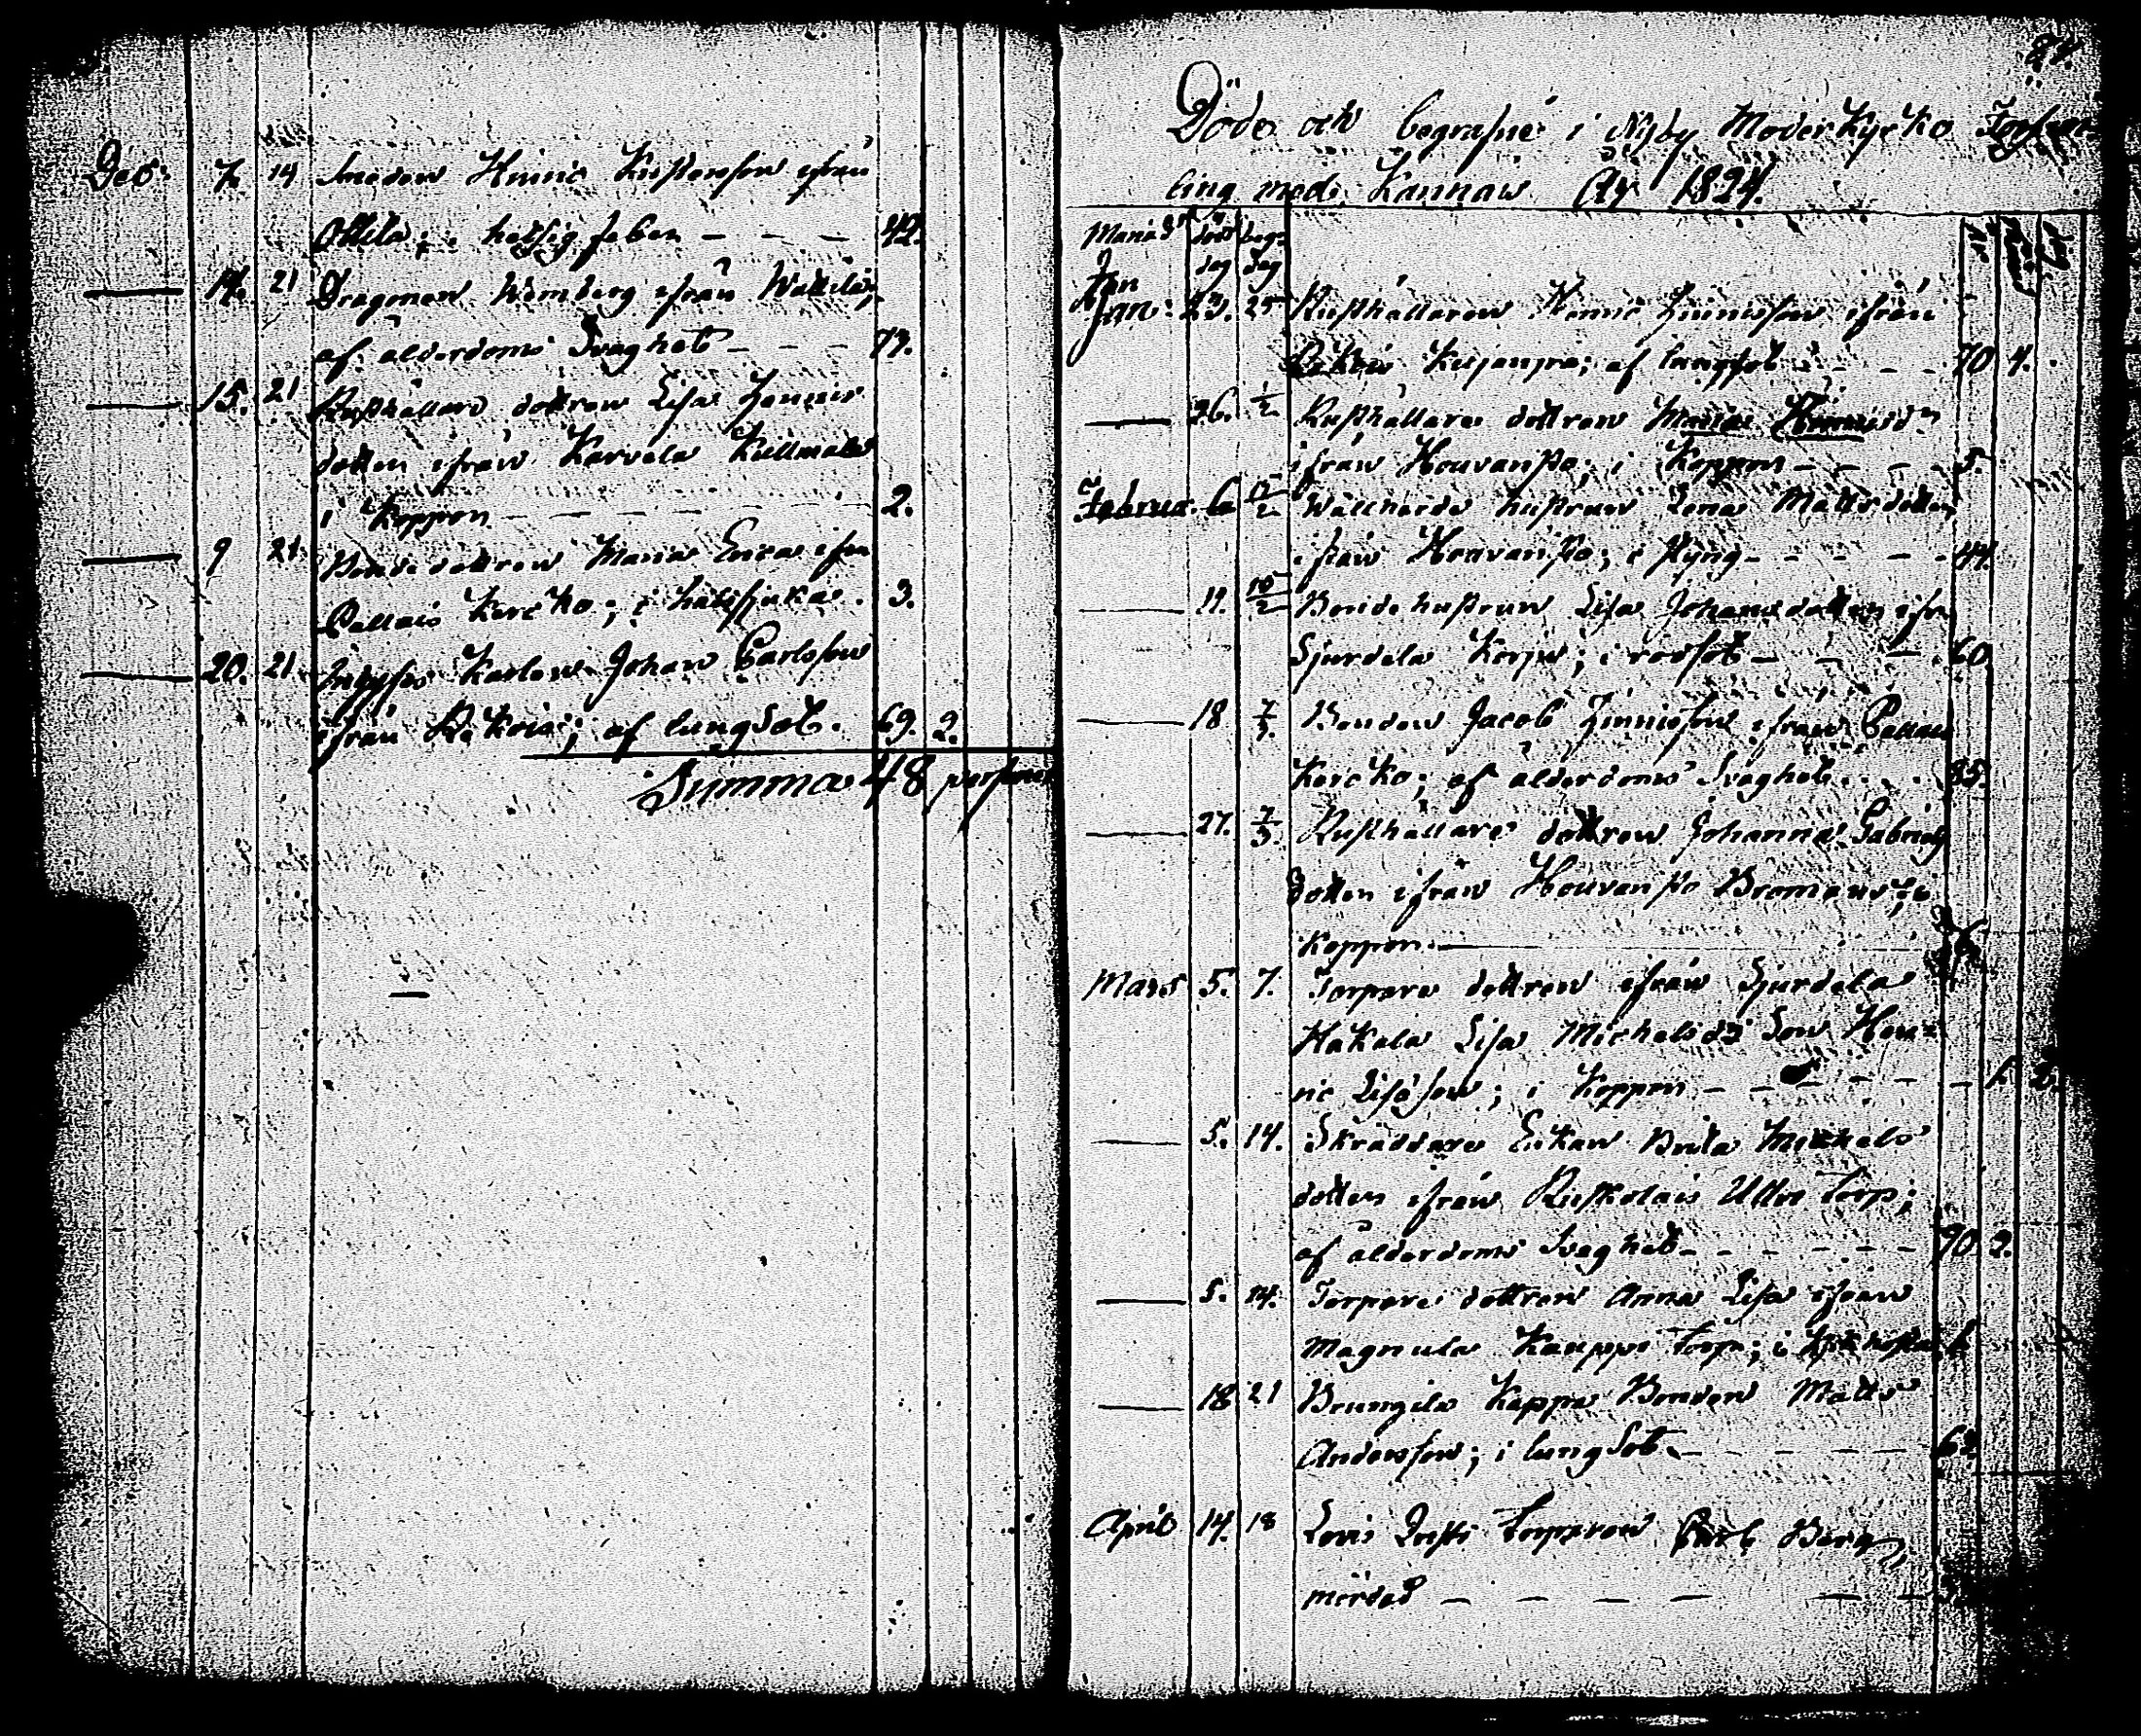 Dec: 7. 14 Smeden Hinric Kustersson ifrån
Ollila; i hetsig feber — — — 42.
— 14. 21 Dragonen Wemberg ifrån Wallila;
af ålderdoms Svaghet — — — 73.
— 15. 21 Rusthållare dottren Lisa Hennis
dotter ifrån Karvela Kullmala
i Koppor — — — 2.
— 9 21. Bonde dottren Maria Erica ifrn
Pallais Kercko; i halssjuka. 3.
— 20. 21 Inhyses Karlen Johan Carlsson
ifrån Rekois; af lungsot. 69. 2.
Summa 48 personer
27.
Döde och begrafne i Nyby Moderkyrko
ling med Kannan År 1824.
Månad död beg:
dag dag
Jan
Jan: 23. 25 Rusthållaren Henric Hinnisson ifrån
Rekois Kujanpä; af lungsot — — 70 4.
— 26. 1/2 Rusthållare dottren Maria Hinrisdr
ifrån Houvanpä; i Koppor — — — 5.
Februa. 6 15/2 Vallherde hustrun Lena Mattsdotter
ifrån Houvanpä; i styng — — — — 44.
— 11. 15/2 Bonde hustrun Lisa Johansdotter ifrn
Sjurdela Korpi; i rödsot — — — 60.
— 18 7/3. Bonden Jacob Hinnisson ifrån Pallais
Kercko; af ålderdoms Svaghet. . . 85.
— 27. 7/3. Rusthållare dottren Johanna Gabriels
dotter ifrån Houvanpä Bromans; i
Koppor. —
Mars 5. 7. Torpare dottren ifrån Sjurdela
Hakala Lisa Michelsdr Son Hen-
ric Lisäson; i Koppor — — — — 1. 2.
— 5. 14. Skräddare Enkan Brita Michels
dotter ifrån Ruskolais Utter Torp;
af ålderdoms Svaghet — — — — — 90. 2.
— 5. 14. Torpare dottren Anna Lisa ifrån
Magnula Kauppi Torp; i
— 18 21 Brungila Kappa Bonden Matts
Andersson; i lungsot. — — — — — 62
April 14. 18 Lovis Torparen Carl Berg,
mördad — — — — —